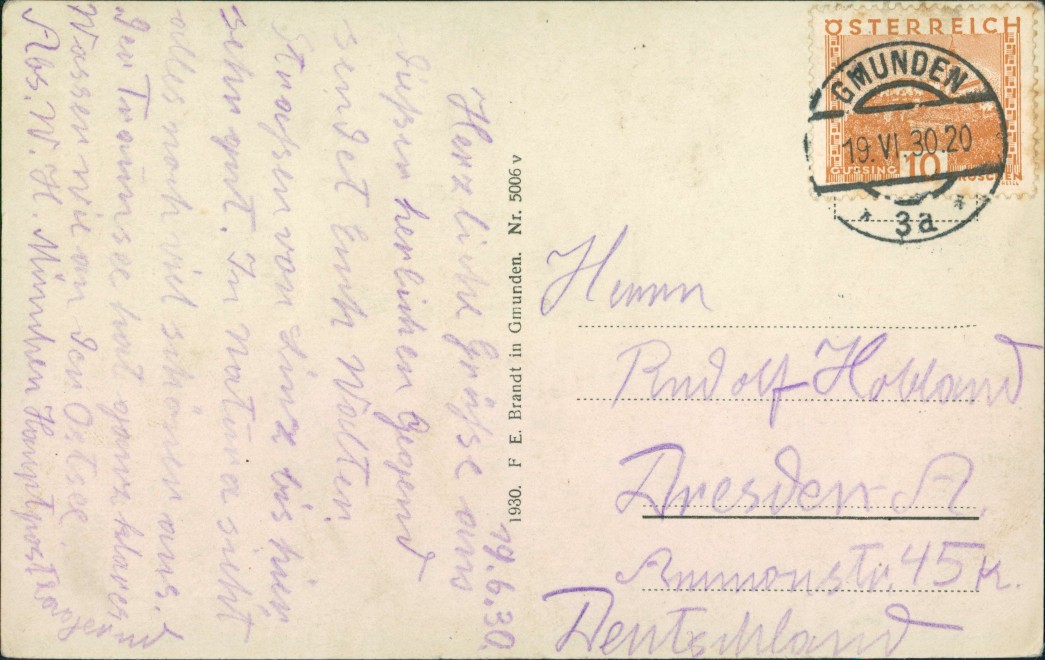 19.6.30.
Herzliche Grüße aus
dieser herrlichen Gegend
sendet Euch Walter.
Straßen von Linz bis hier
sehr gut. In natura sieht
alles noch viel schöner aus.
Der Traunsee hat ganz klares
Wasser wie an der Ostsee
Abs. W. H. München Hauptpost
1930. F. E. Brandt in Gmunden. Nr. 5006 v
ÖSTERREICH
GÜSSING 10 GROSCHEN
GMUNDEN
19.VI.30.20
* 3a *
Herrn
Rudolf Hobland
Dresden-A.
Ammonstr. 45 K.
Deutschland